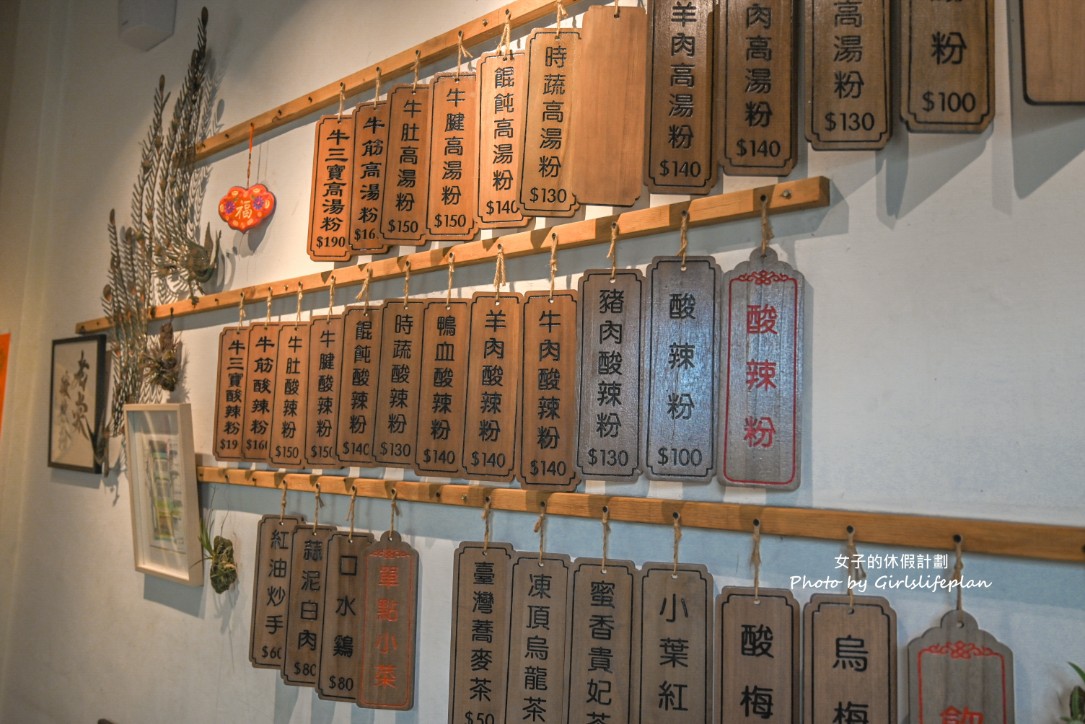 牛三寶高湯粉 $190
牛筋高湯粉
牛肚高湯粉 $150
牛腱高湯粉 $150
餛飩高湯粉
時蔬高湯粉 $130
羊肉高湯粉 $140
肉高湯粉 $140
高湯粉 $130
粉 $100
福
牛三寶酸辣粉
牛筋酸辣粉 $160
牛肚酸辣粉 $150
牛腱酸辣粉 $150
餛飩酸辣粉 $140
時蔬酸辣粉 $130
鴨血酸辣粉 $140
羊肉酸辣粉 $140
牛肉酸辣粉 $140
豬肉酸辣粉 $130
酸辣粉 $100
酸辣粉
紅油炒手
蒜泥白肉 $80
口水鷄 $80
單點小菜
臺灣蕎麥茶 $50
凍頂烏龍茶
蜜香貴妃茶
小葉紅
酸梅
烏梅
飲
女子的休假計劃
Photo by Girlslifeplan